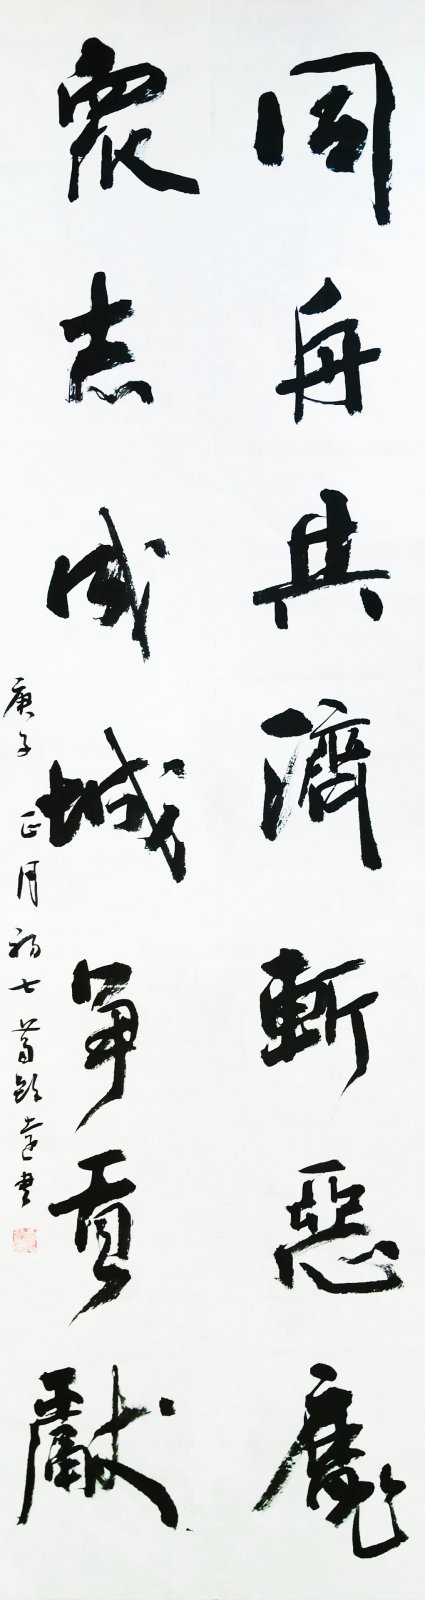 同舟共濟斬惡魔
衆志成城爭貢獻
庚子正月初七 書